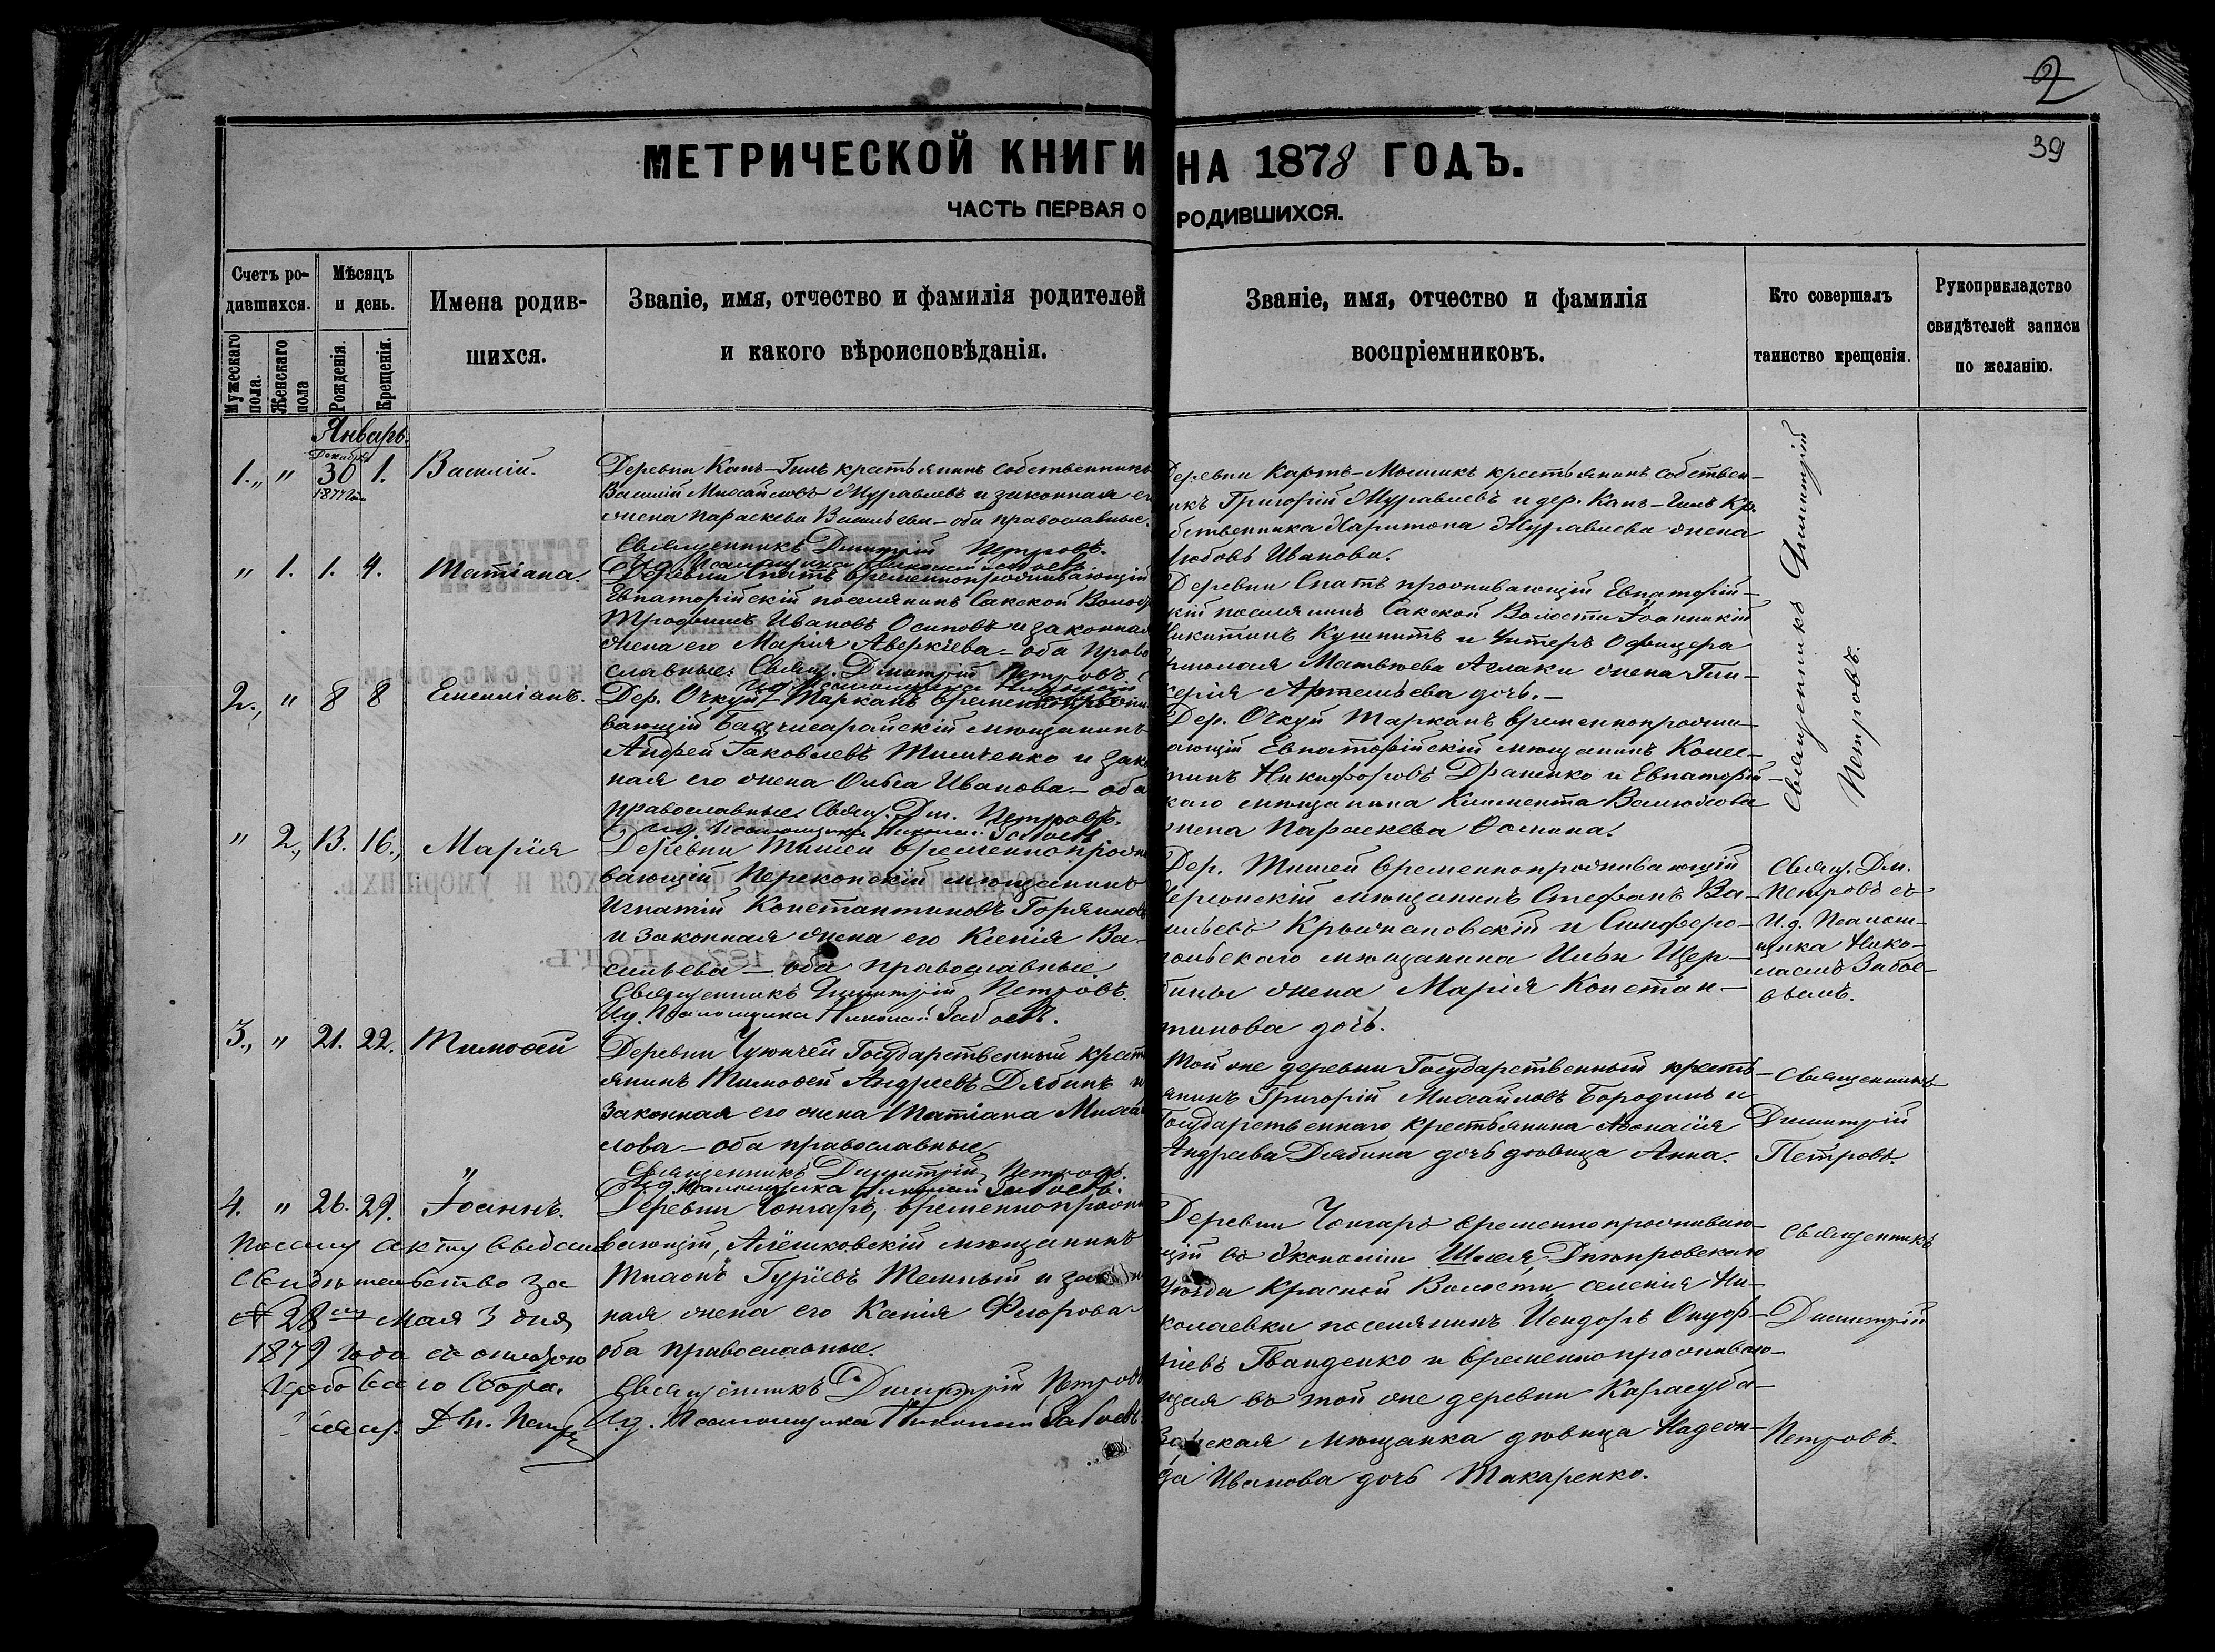 2
39
МЕТРИЧЕСКОЙ КНИГИ НА 1878 ГОДЪ.
ЧАСТЬ ПЕРВАЯ О РОДИВШИХСЯ.
Счетъ ро-
дившихся.
Мужескаго пола.
Женскаго пола
Мѣсяцъ
и день.
Рожденія.
Крещенія.
Имена родив-
шихся.
Званіе, имя, отчество и фамилія родителей
и какого вѣроисповѣданія.
Званіе, имя, отчество и фамилія
воспріемниковъ.
Кто совершалъ
таинство крещенія.
Рукоприкладство
свидѣтелей записи
по желанію.
Январь.
Декабря
1. " 30 1. Василій.
1877 года
Деревни Канъ-Гилъ крестьянинъ собственникъ
Василій Михайловъ Муравлевъ и законная е
жена Параскева Васильева - оба православные.
Священникъ Димитрій Петровъ.
Деревни Картъ-Мышикъ крестьянинъ собствен-
икъ Григорій Муравлевъ и дер. Канъ-Гилъ Кр.
бственника Харитона Муравлева жена
Любовь Иванова.
Священникъ Димитрій
Петровъ.
" 1. 1. 4. Татіана.
Деревни Спатъ временнопроживающій
Евпаторійскій поселянинъ Сакской Волос
Трофимъ Ивановъ Осиповъ и законная
жена его Марія Аверкіева - оба право
славные. Свящ. Димитрій Петровъ.
Деревни Спатъ проживающій Евпаторій-
кій поселянинъ Сакской Волости Іоанникій
Никитинъ Кушнитъ и Унтеръ Офицера
Матвѣева Аглаки жена Гли-
керія Артемьева дочь.-
2. " 8 8 Емиліанъ.
Дер. Очкуй-Тарханъ временнопрожи
вающій Бахчисарайскій мѣщанинъ
Андрей Іаковлевъ Тимченко и зак
ная его жена Ольга Иванова - оба
православные. Свящ. Дм. Петровъ.
И.д. Псаломщика Николай Забоевъ
Дер. Очкуй Тарханъ временнопрожи-
ающій Евпаторійскій мѣщанинъ
Никифоровъ Драненко и Евпаторій-
каго мѣщанина Климента
жена Параскева Фомина.
" 2. 13. 16. Марія
Деревни Тишей временнопрожи
вающій Перекопскій мѣщанинъ
Игнатій Константиновъ Горяиновъ
и законная жена его Ксенія Ва-
сильева - оба православные.
Священникъ Димитрій Петровъ.
И.д. Псаломщика Николай Забоевъ.
Дер. Тишей временнопроживающій
Херсонскій мѣщанинъ Стефанъ Ва-
сильевъ Крыжановскій и Симферо-
польскаго мѣщанина Ильи Щер-
бины жена Марія Констан-
тинова дочь.
Свящ. Дм.
Петровъ съ
И.д. Псалом-
щика Нико-
лаемъ Забое-
вымъ.
3. " 21. 22. Тимоѳей
Деревни Чуюнчей Государственный крест
янинъ Тимоѳей Андреевъ Дябинъ и
законная его жена Татіана Михай
лова - оба православные
Священникъ Димитрій Петровъ.
И.д. Псаломщика Николай Забоевъ.
Той же деревни Государственный кресть-
янинъ Григорій Михайловъ Бородинъ и
Государственнаго крестьянина Аѳанасія
Андреева Дябина дочь дѣвица Анна.
Священникъ
Димитрій
Петровъ.
4. " 26. 29. Іоаннъ.
По сему акту выдано
свидѣтельство за
№ 28 мая 3 дня
1879 года съ оплатою
гербоваго сбора.
Свящ. Дм. Петр
Деревни Чонгаръ, временнопрожи
вающій, Алёшковскій мѣщанинъ
Гурьевъ Темный и закон
ная жена его Ксенія Флорова-
оба православные.
Священникъ Димитрій Петровъ
И.д. Псаломщика Николай Забоевъ.
Деревни Чонгаръ временнопроживаю-
щій въ Экономіи Днѣпровскаго
Уѣзда Красной Волости, селенія Ни-
колаевки поселянинъ Исидоръ Онуф-
ріевъ Гванденко и временнопроживаю-
щая въ той же деревни Карасуба-
зарская мѣщанка дѣвица Надеж-
да Иванова дочь Макаренко.
Священникъ
Димитрій
Петровъ.